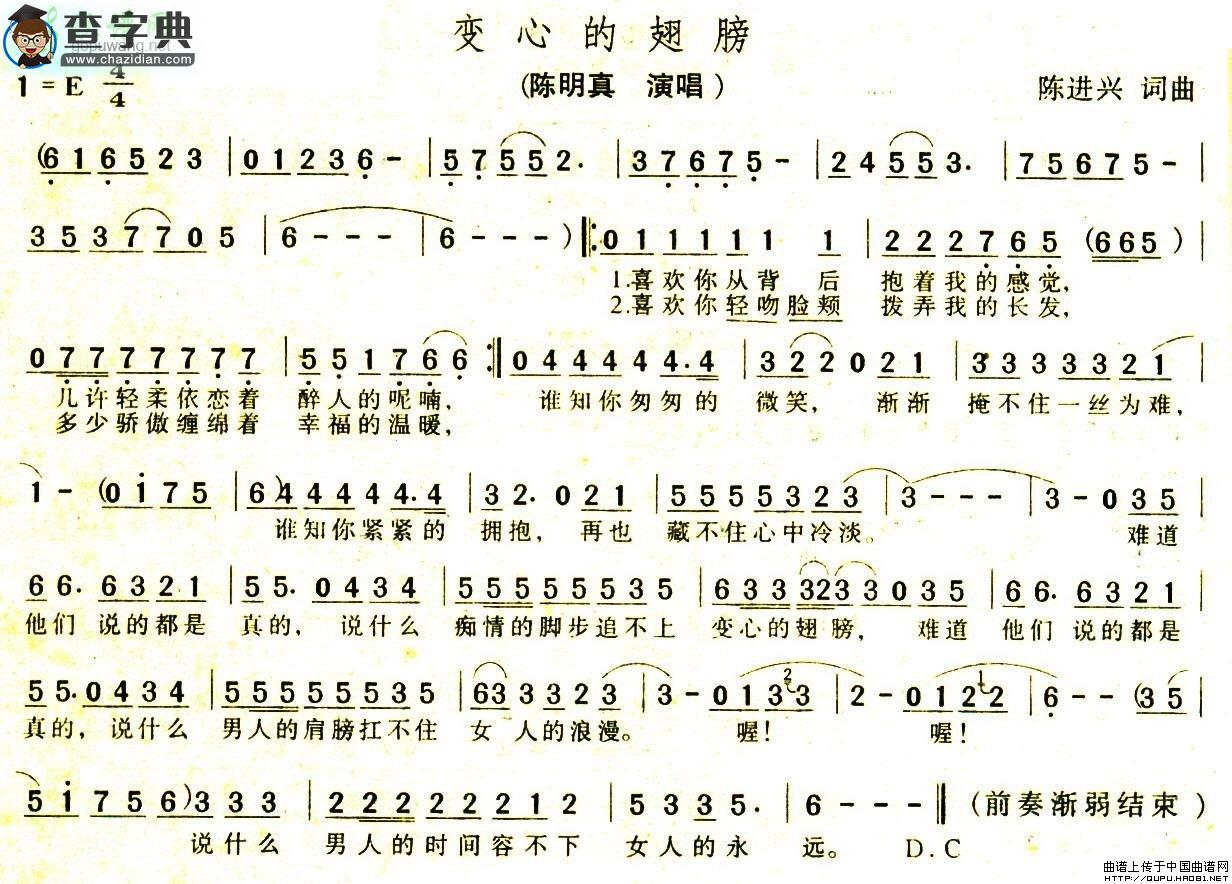 查字典
www.chazidian.com
变心的翅膀
1=E 4/4
(陈明真 演唱)
陈进兴 词曲
(616523 | 01236- | 57552. | 37675- | 24553. | 75675- |
3537705 | 6--- | 6---) ‖: 011111 1 | 222765 (665) |
1.喜欢你从背后 抱着我的感觉,
2.喜欢你轻吻脸颊 拨弄我的长发,
07777777 | 551766 :‖ 044444.4 | 322021 | 3333321 |
几许轻柔依恋着 醉人的呢喃, 谁知你匆匆的 微笑, 渐渐 掩不住一丝为难,
多少骄傲缠绵着 幸福的温暖,
1-(0175 | 6)44444.4 | 32.021 | 55555323 | 3--- | 3-035 |
谁知你紧紧的 拥抱, 再也 藏不住心中冷淡。 难道
66.6321 | 55.0434 | 555555535 | 6333233035 | 66.6321 |
他们 说的都是 真的, 说什么 痴情的脚步追不上 变心的翅膀, 难道 他们 说的都是
55.0434 | 555555535 | 6333323 | 3-0133 | 2-0122 | 6--(35 |
真的, 说什么 男人的肩膀扛不住 女 人的浪漫。 喔! 喔!
51756)333 | 222222212 | 5335. | 6--- ‖ (前奏渐弱结束)
说什么 男人的时间容不下 女人的永 远。 D.C
曲谱上传于中国曲谱网
HTTP://QUPU.HAO81.NET